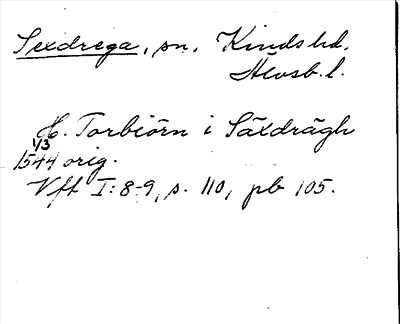 Sexdrega, sn. Kinds hd.
Älvsb. l.
H. Torbiörn i Säxdrägh
1/3
1544 orig.
Vff I: 8-9, s. 110, pb 105.